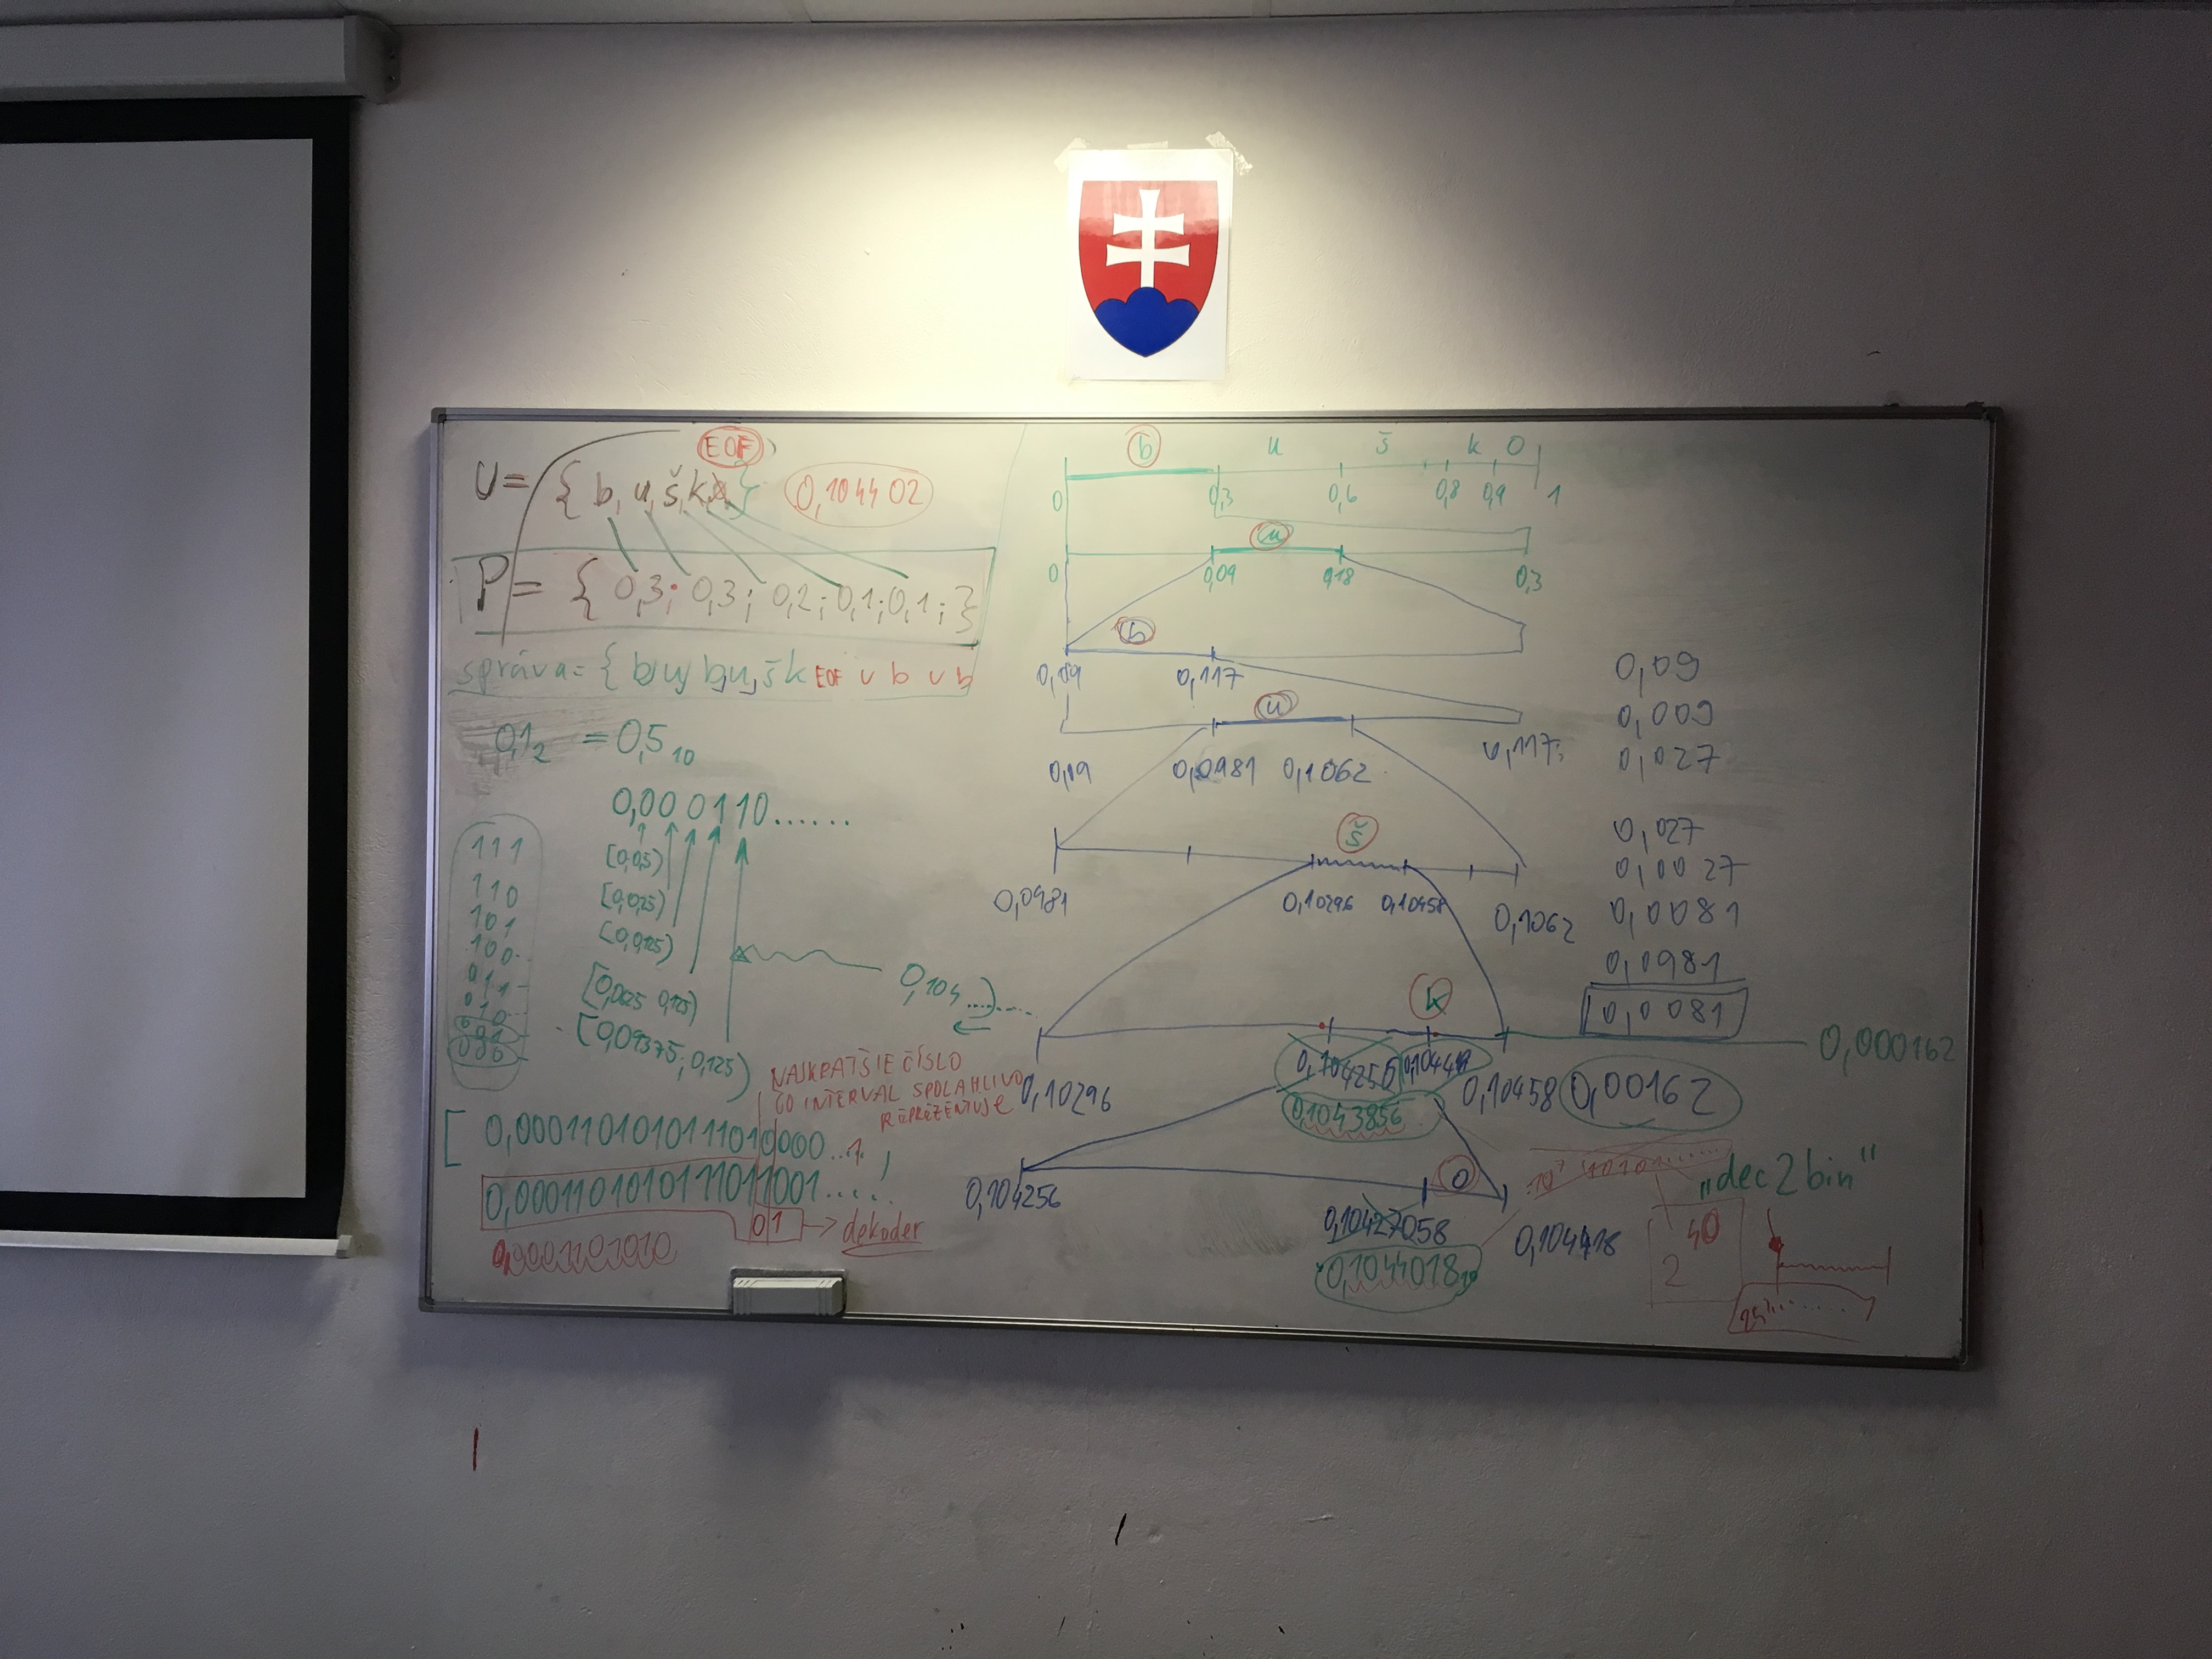 EOF
U= { b, u, š, k, } 0,104402
P = { 0,3; 0,3; 0,2; 0,1; 0,1; }
správa= { b, u, b, u, š k EOF u b u b
0,1₂ = 0,5₁₀
0,000110......
111
110
101
100
011
010
001
000
[0,0,5)
[0,0,25)
[0,0,125)
[0,0625 0,125)
[0,09375; 0,125)
0,104......
NAJKRATŠIE ČÍSLO
ČO INTERVAL SPOLAHLIVO
REPREZENTUJE
[ 0,0001101010111010000...
0,0001101010111011001.....
01 → dekoder
0,0001101010
b u š k o
0 0,3 0,6 0,8 0,9 1
u
0 0,09 0,18 0,3
b
0,09 0,117
u
0,09 0,0981 0,1062 0,117
š
0,0981 0,10296 0,10458 0,1062
k
0,10296 0,104256 0,104418 0,10458 0,00162
0,1043856
0,000162
o
0,104256 0,10427058 0,104418
0,1044018
0,09
0,009
0,027
0,027
0,0027
0,0081
0,0981
0,0081
„dec2bin"
40
2